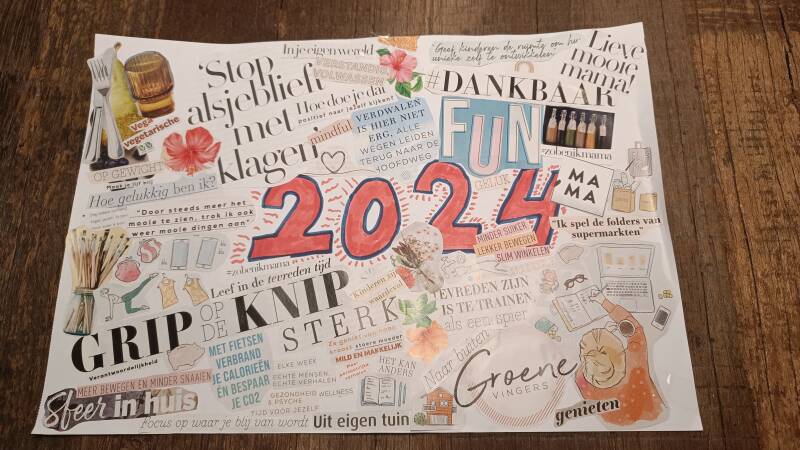 In je eigen wereld
VERSTANDIG
VOLWASSEN
'Stop
alsjeblieft
met
klagen'
Hoe doe je dat
positief naar jezelf kijken?
mindful
"Geef kinderen de ruimte om hun
unieke zelf te ontwikkelen"
Lieve
mooie
mama!
#DANKBAAR
VERDWALEN
IS HIER NIET
ERG, ALLE
WEGEN LEIDEN
TERUG NAAR DE
HOOFDWEG
FUN
#zobenikmama
Vega
vegetarische
OP GEWICHT
Hoe gelukkig ben ik?
"Door steeds meer het
mooie te zien, trok ik ook
weer mooie dingen aan"
2024
GELUK
MA
MA
"Ik spel de folders van
supermarkten"
MINDER SUIKER
LEKKER BEWEGEN
SLIM WINKELEN
#zobenikmama
Leef in de tevreden tijd
Kinderen zijn
waardevol
GRIP
OP
DE
KNIP
STERK
Verantwoordelijkheid
TEVREDEN ZIJN
IS TE TRAINEN,
als een spier
MILD EN MAKKELIJK
MET FIETSEN
VERBRAND
JE CALORIEËN
EN BESPAAR
JE CO2
ELKE WEEK
ECHTE MENSEN,
ECHTE VERHALEN
GEZONDHEID
& PSYCHE
WELLNESS
TIJD VOOR JEZELF
HET KAN
ANDERS
Naar buiten
Groene
VINGERS
genieten
MEER BEWEGEN EN MINDER SNAAIEN
Sfeer in huis
Focus op waar je blij van wordt
Uit eigen tuin